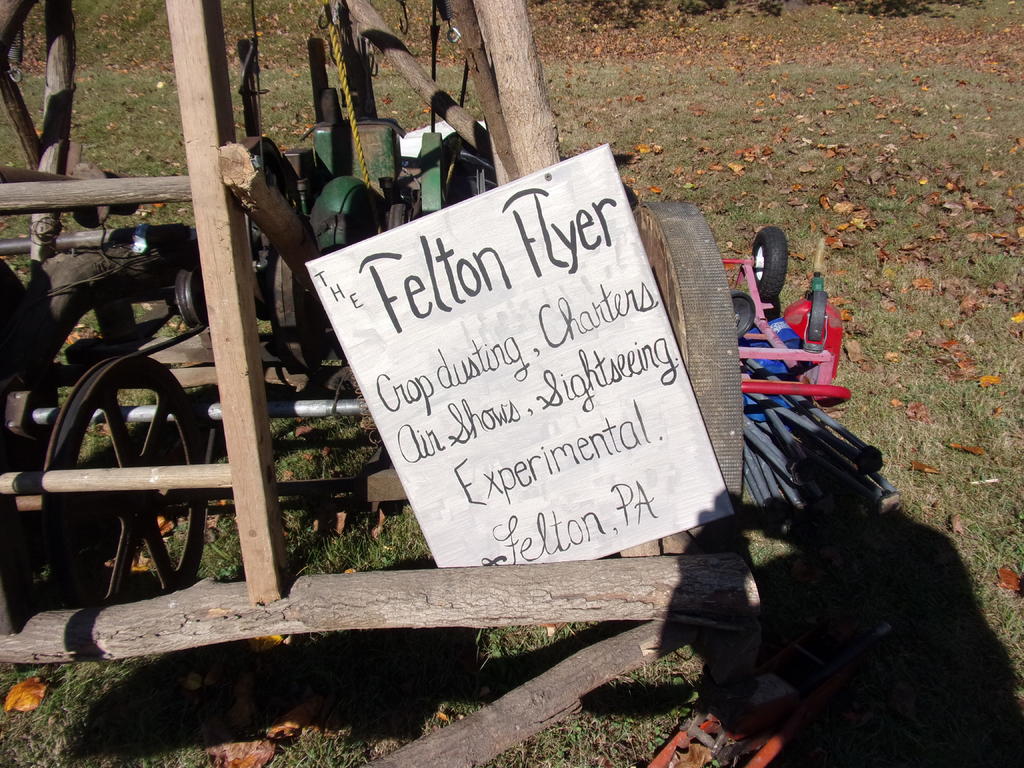 THE Felton Flyer
Crop dusting, Charters,
Air Shows, Sightseeing.
Experimental.
Felton, PA